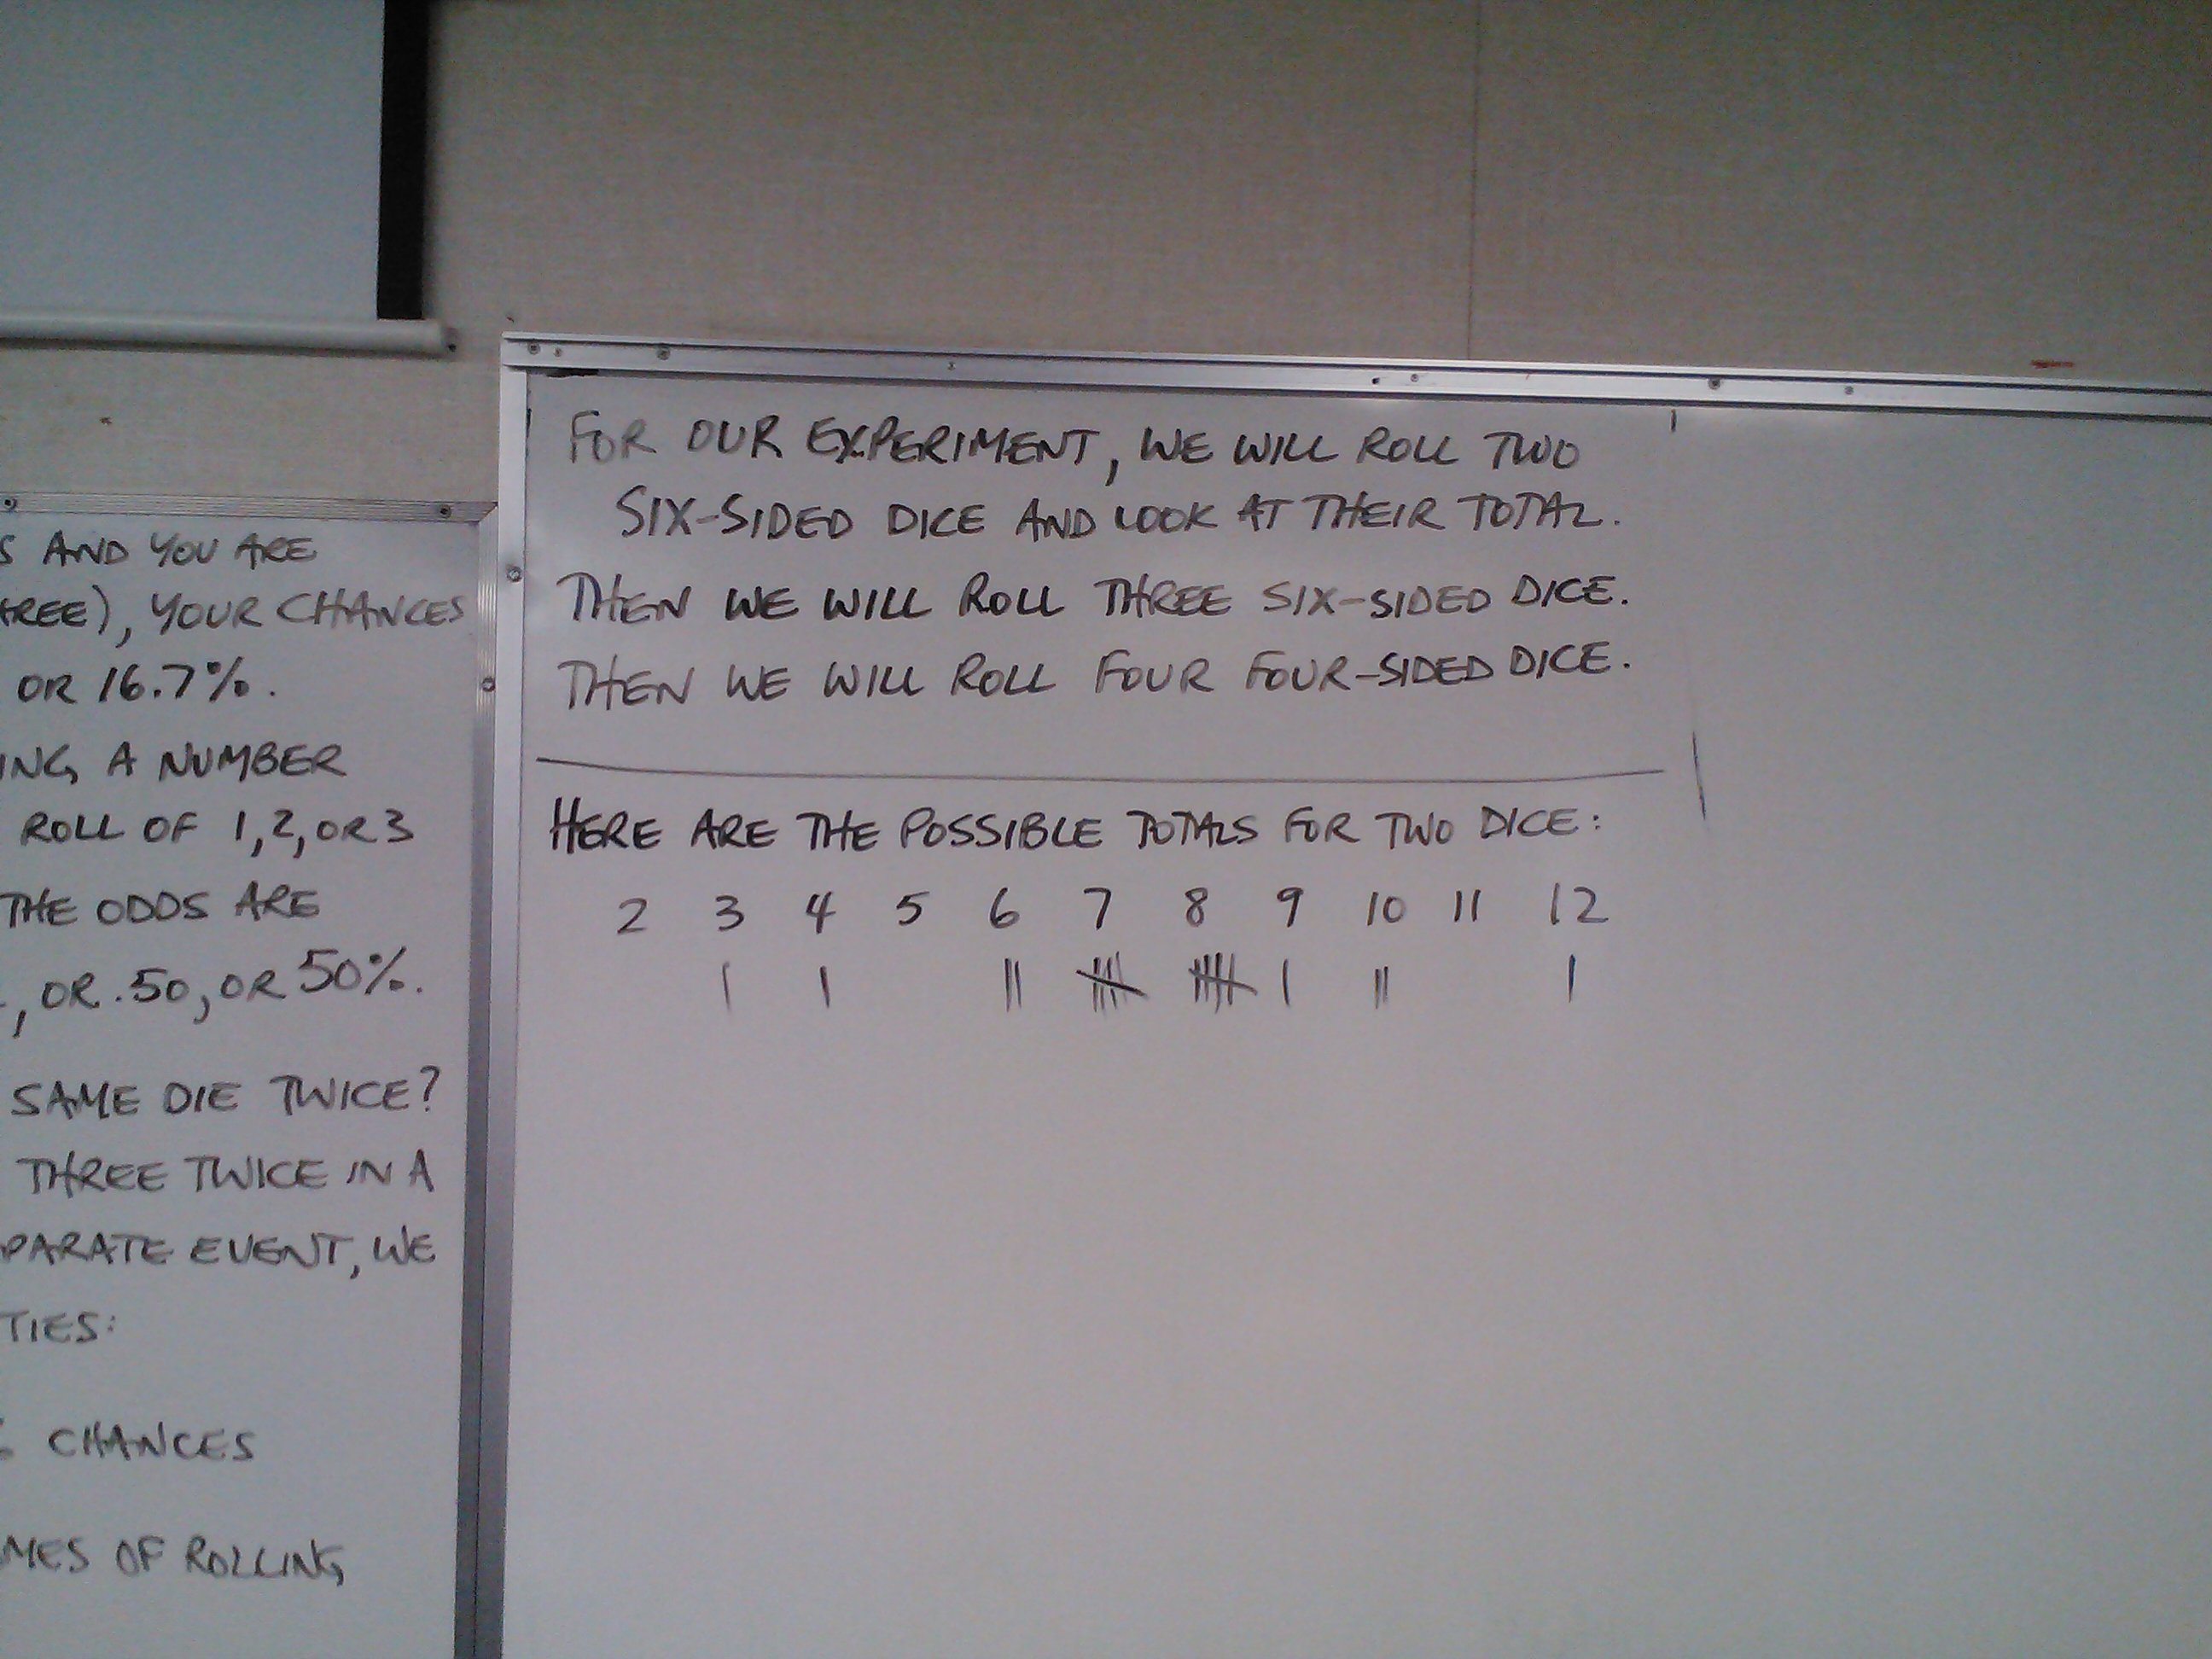 S AND YOU ARE
REE), YOUR CHANCES
OR 16.7%.
ING A NUMBER
ROLL OF 1,2, OR 3
THE ODDS ARE
, OR .50, OR 50%.
SAME DIE TWICE?
THREE TWICE IN A
PARATE EVENT, WE
TIES:
CHANCES
MES OF ROLLING
FOR OUR EXPERIMENT, WE WILL ROLL TWO
SIX-SIDED DICE AND LOOK AT THEIR TOTAL.
THEN WE WILL ROLL THREE SIX-SIDED DICE.
THEN WE WILL ROLL FOUR FOUR-SIDED DICE.
HERE ARE THE POSSIBLE TOTALS FOR TWO DICE:
2 3 4 5 6 7 8 9 10 11 12